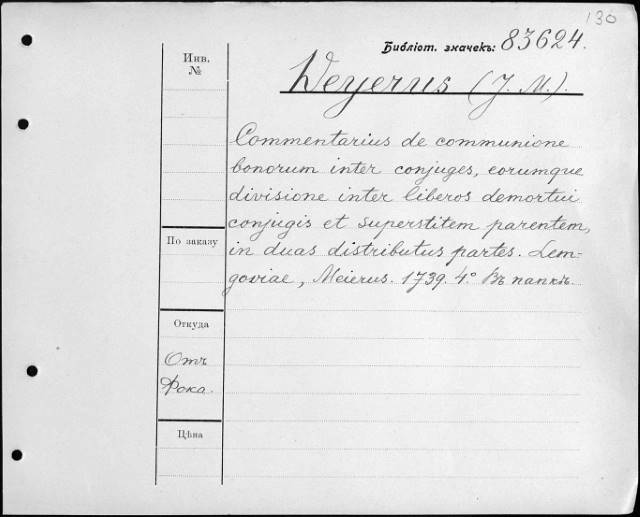 130
Библіот. значекъ: 83624.
Инв.
№
Weyerus (J. M.).
Commentarius de communione
bonorum inter conjuges, eorumque
divisione inter liberos demortui
conjugis et superstitem parentem,
in duas distributus partes. Lem-
goviae, Meierus. 1739. 4.° Въ папкѣ.
По заказу
Откуда
Отъ
Фока.
Цѣна